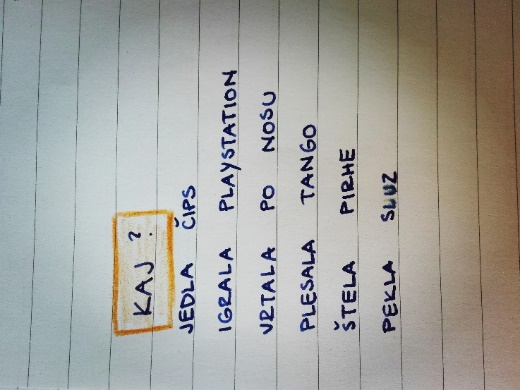 KAJ?
JEDLA ČIPS
IGRALA PLAYSTATION
VRTALA PO NOSU
PLESALA TANGO
ŠTELA PIRHE
PEKLA SLUZ